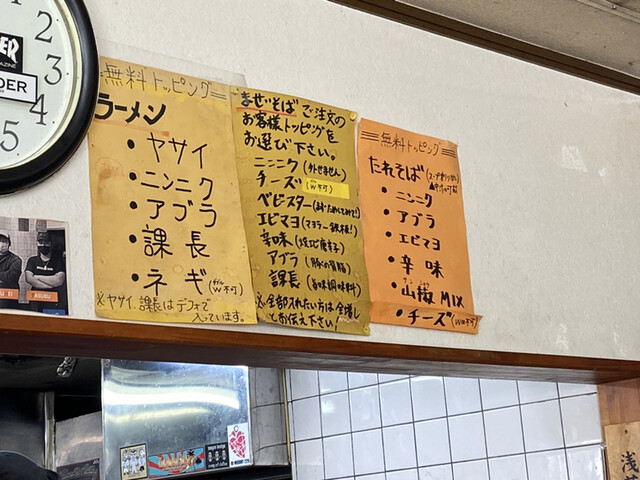 DER
2
3
4
5
＝無料トッピング＝
ラーメン
・ヤサイ
・ニンニク
・アブラ
・課長
・ネギ(W不可)
※ヤサイ、課長はデフォで
入っています。
まぜそばご注文の
お客様トッピングを
お選び下さい。
ニンニク(外せません)
チーズ(W不可)
ベビスター
エビマヨ(マヨラー歓喜!)
辛味
アブラ(豚の背脂)
課長(旨味調味料)
※全部入れたい方は全増し
とお伝え下さい!
＝無料トッピング＝
たれそば
・ニンニク
・アブラ
・エビマヨ
・辛味
・山椒MIX
・チーズ(W不可)
ASUGU
浅